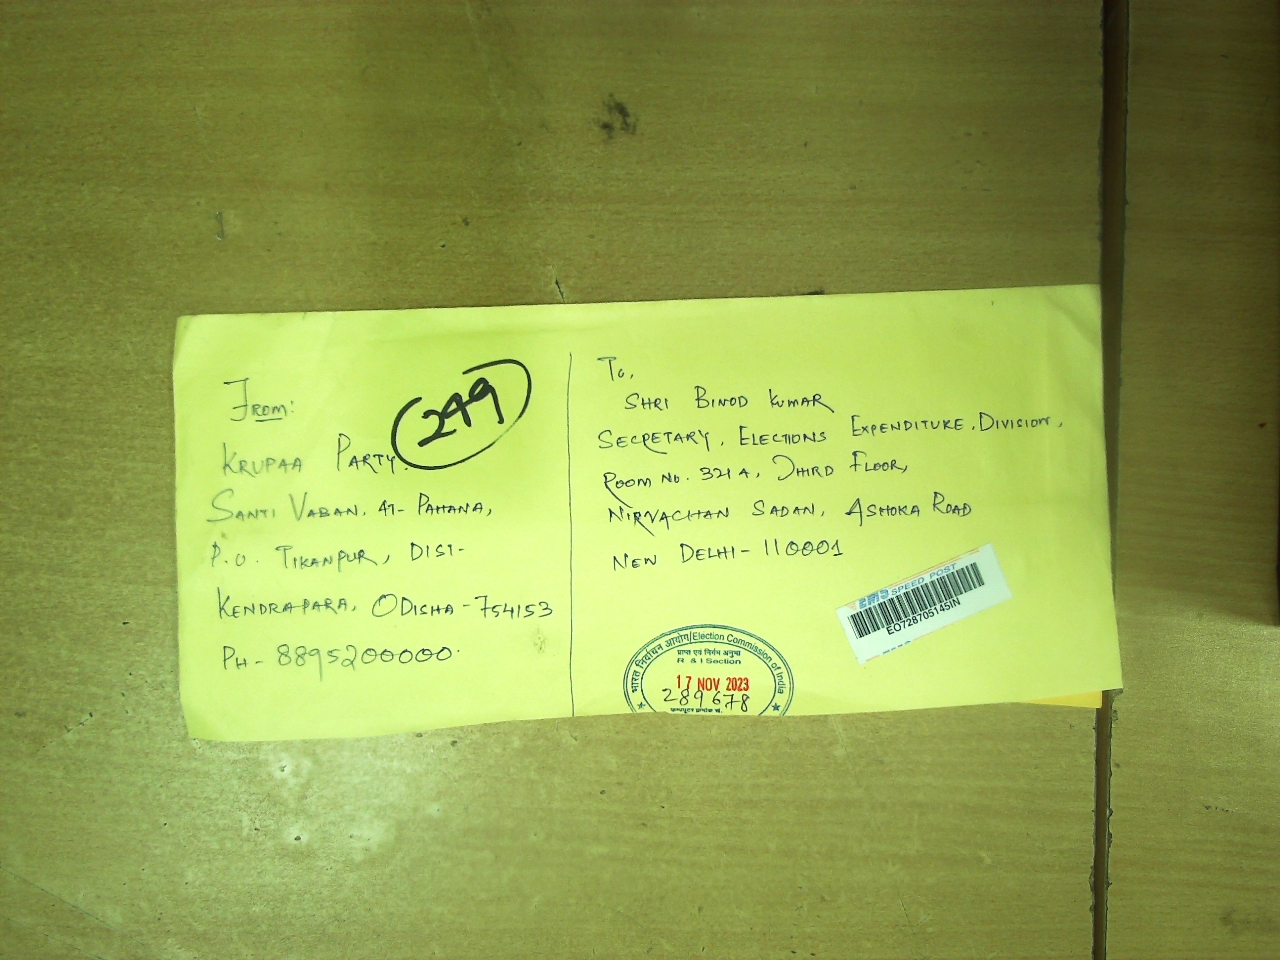 FROM:
249
KRUPAA PARTY.
SANTI VABAN, AT- PAHANA,
P.O. TIKANPUR, DIST-
KENDRAPARA, ODISHA - 754153
PH - 8895200000.
To,
SHRI BINOD KUMAR
SECRETARY, ELECTIONS EXPENDITURE, DIVISION,
ROOM NO. 321 A, THIRD FLOOR,
NIRVACHAN SADAN, ASHOKA ROAD
NEW DELHI - 110001
EMS SPEED POST
EO728705145IN
भारत निर्वाचन आयोग/Election Commission of India
प्राप्त एवं निर्गम अनुभाग
R & I Section
17 NOV 2023
289678